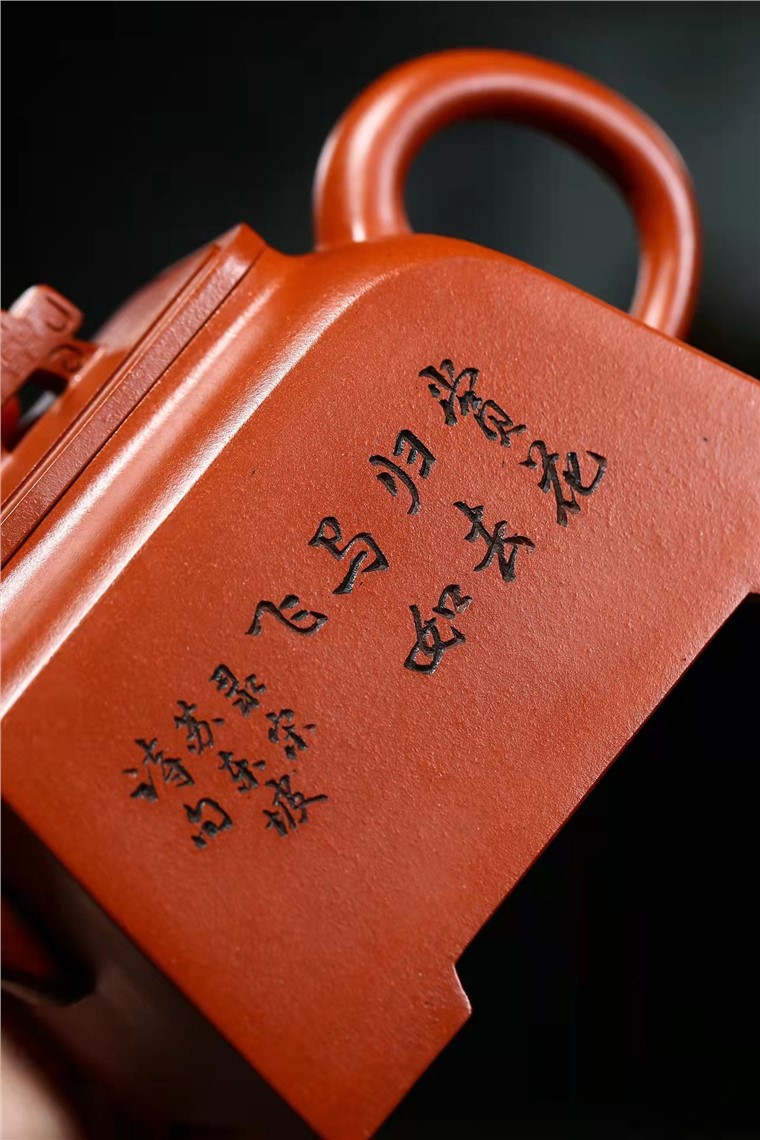 赏花
归去
马如
飞
录宋
苏东坡
诗句